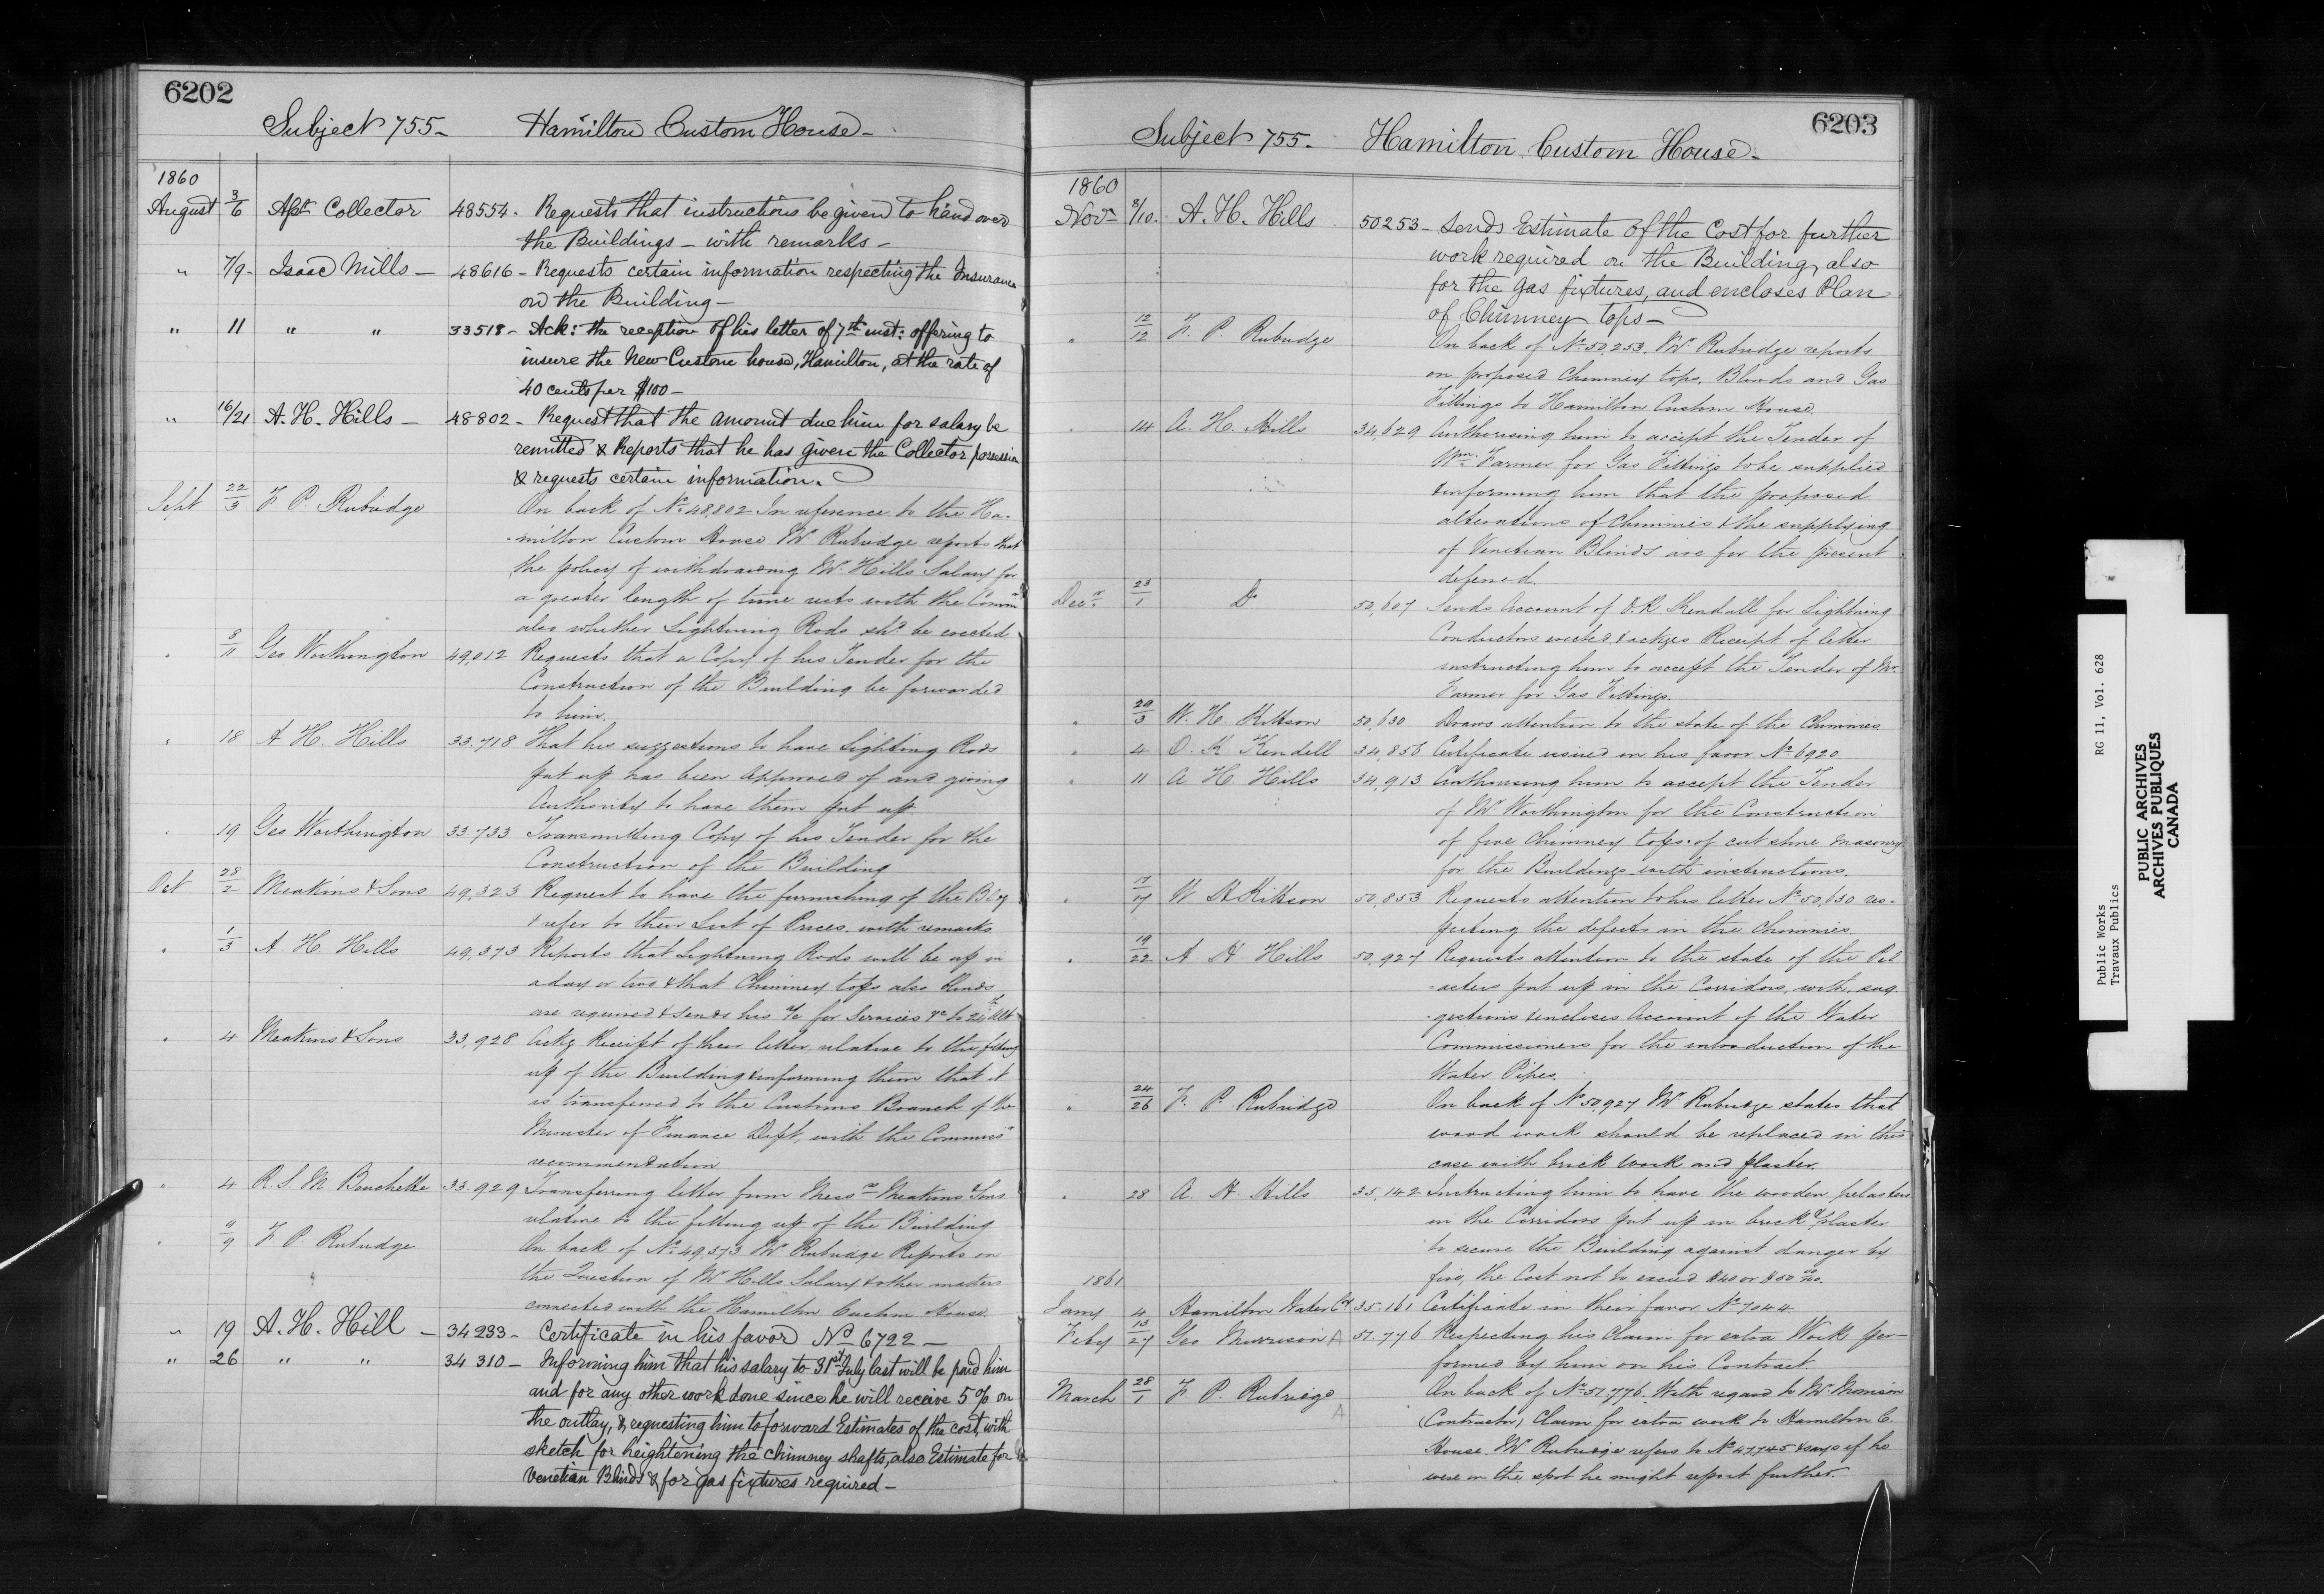 6202
Subject 755 - Hamilton Custom House -
1860
August 3/6 Asst Collector 48554 - Requests that instructions be given to hand over
the Buildings - with remarks -
" 7/9 - Isaac Mills - 48616 - Requests certain information respecting the Insurance
on the Building -
" 11 " " 33518 - Ack: the reception of his letter of 7th inst: offering to
insure the New Custom house, Hamilton, at the rate of
40 cents per $100 -
" 16/21 A. H. Hills - 48802 - Request that the amount due him for salary be
remitted & Reports that he has given the Collector possession
& requests certain information.
Sept 22/3 F P. Rubidge On back of No 48,802 In reference to the Ha-
-milton Custom House Mr Rubidge reports that
the policy of withdrawing Mr. Hills Salary for
a greater length of time rests with the Commr
also whether Lightning Rods shd be erected
" 8/11 Geo Worthington 49,012 Requests that a Copy of his Tender for the
Construction of the Building be forwarded
to him.
" 18 A H. Hills 33.718 That his suggestions to have Lighting Rods
put up has been approved of and giving
Authority to have them put up
" 19 Geo Worthington 33.733 Transmitting Copy of his Tender for the
Construction of the Building
Oct 28/2 Meakins & Sons 49,323 Request to have the furnishing of the Bldg
& refer to their List of Prices. with remarks
" 1/3 A. H. Hills 49,373 Reports that Lightning Rods will be up in
a day or two & that Chimney tops also blinds
are required & sends his a/c for Services &c to
" 4 Meakins & Sons 33,928 Ackg Receipt of their letter relative to the fitting
up of the Building & informing them that it
is transferred to the Customs Branch of the
Minister of Finance Dept, with the Commrs
recommendation
" 4 R. S. M. Bouchette 33.929 Transferring letter from Messrs Meakins & Sons
relative to the fitting up of the Building
" 9 F P. Rubidge On back of No 49,373 Mr Rubidge Reports on
the Question of Mr Hills Salary & other matters
connected with the Hamilton Custom House
" 19 A. H. Hill - 34233 - Certificate in his favor No 6722 -
" 26 " " 34310 - Informing him that his salary to 31st July last will be paid him
and for any other work done since he will receive 5% on
the outlay, & requesting him to forward Estimates of the cost, with
sketch for heightening the chimney shafts, also Estimate for
Venetian Blinds & for gas fixtures required -
6203
Subject 755 - Hamilton Custom House -
1860
Novr 8/10. A. H. Hills 50253 - Sends Estimate of the Cost for further
work required on the Building, also
for the gas fixtures, and encloses Plan
of Chimney tops -
" 12/12 F. P. Rubidge On back of No 50,253. Mr Rubidge reports
on proposed Chimney tops, Blinds and Gas
Fittings to Hamilton Custom House.
" 14 A. H. Hills 34,629 Authorising him to accept the Tender of
Wm. Farmer for Gas Fittings to be supplied
& informing him that the proposed
alterations of Chimnies & the supplying
of Venetian Blinds are for the present
deferred.
Decr. 23/1 Do 50,607 Sends Account of O. K Kendall for Lightning
Conductors erected & ackges Receipt of letter
instructing him to accept the Tender of Mr.
Farmer for Gas Fittings.
" 29/3 W. H. Kittson 50,630 Draws attention to the state of the Chimnies.
" 4 O. K Kendell 34,856 Certificate issued in his favor No 6920
" 11 A H. Hills 34,913 Authorising him to accept the Tender
of Mr Worthington for the Construction
of five Chimney tops of cut stone masonry
for the Buildings with instructions.
" 17 W H Kittson 50,853 Requests attention to his letter No 50,630 res-
pecting the defects in the Chimnies.
" 19/22 A H Hills 50,927 Requests attention to the state of the Pil-
-asters put up in the Corridors, with sug-
-gestions & encloses Account of the Water
Commissioners for the introduction of the
Water Pipes.
" 24/26 F. P. Rubidge On back of No 50,927 Mr Rubidge states that
wood work should be replaced in this
case with brick work and plaster.
" 28 A. H Hills 35,142 Instructing him to have the wooden pelasters
in the Corridors put up in brick & plaster
to secure the Building against danger by
fire, the Cost not to exceed $40 or $50
1861
Jany 4 Hamilton Water Co 35.161 Certificate in their favor No 7044.
Feby 13/27 Geo Morrison A 51.776 Respecting his Claim for extra Work per-
formed by him on his Contract.
March 28/1 F. P. Rubidge A On back of No 51,776. With regard to Mr. Morrison
(Contractor) Claim for extra work to Hamilton C.
House Mr Rubidge refers to No 47,745 & says if he
were on the spot he might report further.
Public Works RG 11, Vol. 628
Travaux Publics
PUBLIC ARCHIVES
ARCHIVES PUBLIQUES
CANADA